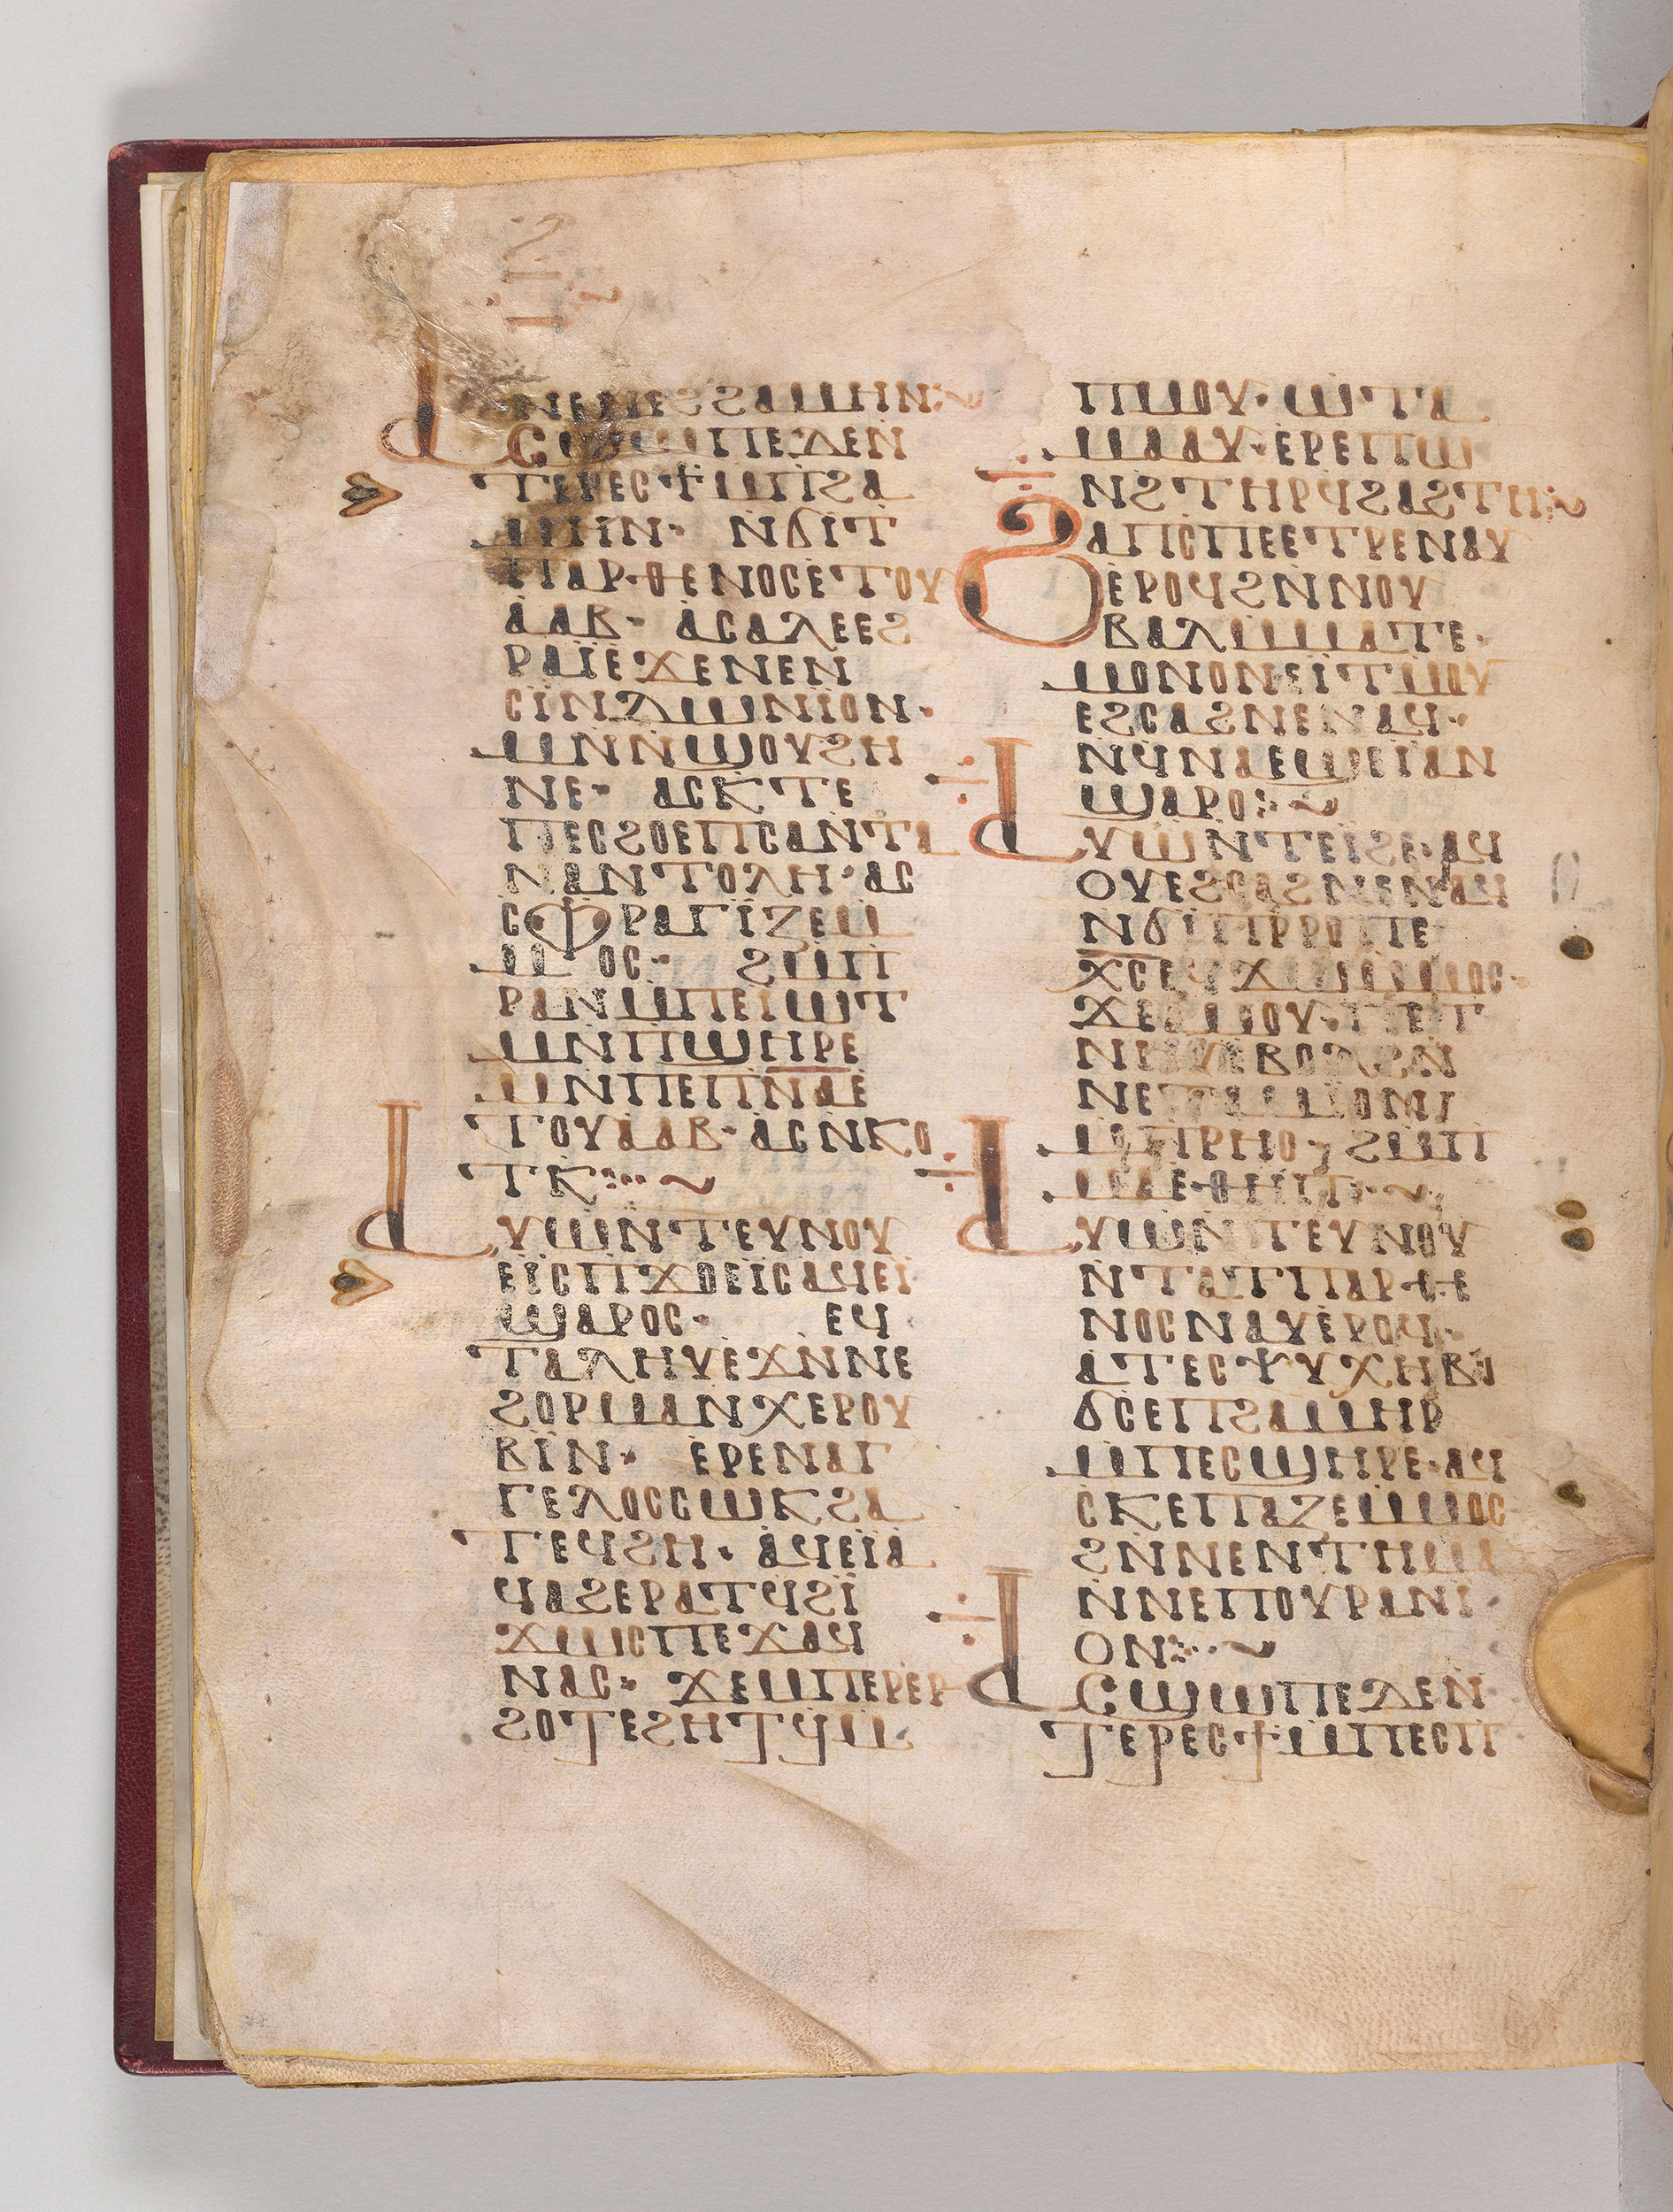 ⲛⲉⲛⲉϩϩⲁⲙⲏⲛ:~
Ⲁⲥϣⲱⲡⲉⲇⲉⲛ
ⲧⲉⲣⲉⲥϯⲙⲡϩⲁ
ⲙⲏⲛ· ⲛϭⲓⲧ
ⲡⲁⲣⲑⲉⲛⲟⲥⲉⲧⲟⲩ
ⲁⲁⲃ· ⲁⲥⲁⲗⲉⲉϩ
ⲣⲁⲓⲉϫⲉⲛⲉⲛ
ⲥⲓⲛⲇⲱⲛⲓⲟⲛ·
ⲙⲛⲛϣⲟⲩϩⲏ
ⲛⲉ· ⲁⲥⲕⲧⲉ
ⲡⲉⲥϩⲟⲉⲡⲥⲁⲛⲧⲁ
ⲛⲁⲛⲧⲟⲗⲏ·ⲁⲥ
ⲥⲫⲣⲁⲅⲓⲍⲉⲙ
ⲙⲟⲥ· ϩⲙⲡ
ⲣⲁⲛⲙⲡⲉⲓⲱⲧ
ⲙⲛⲡϣⲏⲣⲉ
ⲙⲛⲡⲉⲡⲛⲁⲉ
ⲧⲟⲩⲁⲁⲃ·ⲁⲥⲛⲕⲟ
ⲧⲕ:··~
Ⲁⲩⲱⲛⲧⲉⲩⲛⲟⲩ
ⲉⲓⲥⲡϫⲟⲉⲓⲥⲁϥⲉⲓ
ϣⲁⲣⲟⲥ· ⲉϥ
ⲧⲁⲗⲏⲩⲉϫⲛⲛⲉ
ϩⲟⲣⲙⲁⲛⲭⲉⲣⲟⲩ
ⲃⲓⲛ· ⲉⲣⲉⲛⲁⲅ
ⲅⲉⲗⲟⲥⲥⲱⲕϩⲁ
ⲧⲉϥϩⲏ·ⲁϥⲉⲓⲁ
ϥⲁϩⲉⲣⲁⲧϥϩⲓ
ϫⲱⲥⲡⲉϫⲁϥ
ⲛⲁⲥ· ϫⲉⲙⲡⲉⲣⲉⲣ
ϩⲟⲧⲉϩⲏⲧϥⲙ
ⲡⲙⲟⲩ·ⲱⲧⲁ
ⲙⲁⲁⲩ·ⲉⲣⲉⲡⲱ
ⲛϩⲧⲏⲣϥϩⲁϩⲧⲏ:~
Ϩⲁⲡⲥⲡⲉⲉⲧⲣⲉⲛⲁⲩ
ⲉⲣⲟϥϩⲛⲛⲟⲩ
ⲃⲁⲗⲙⲙⲁⲧⲉ·
ⲙⲟⲛⲟⲛⲉⲓⲧⲙⲟⲩ
ⲉϩⲥⲁϩⲛⲉⲛⲁϥ·
ⲛϥⲛⲁⲉϣⲉⲓⲁⲛ
ϣⲁⲣⲟ:·~
Ⲁⲩⲱⲛⲧⲉⲓϩⲉ·ⲁϥ
ⲟⲩⲉϩⲥⲁϩⲛⲉⲛⲁϥ
ⲛϭⲓⲡⲣⲣⲟⲡⲉ
ⲭⲥⲉϥϫⲱⲙⲙⲟⲥ·
ϫⲉⲡⲙⲟⲩ·ⲡⲉⲧ
ⲛⲏⲩⲉⲃⲟⲗϩⲛ
ⲛⲉⲧⲁⲙⲓⲟⲛ
ⲙⲡⲣⲏⲥ
Ⲁⲩⲱⲛⲧⲉⲩⲛⲟⲩ
ⲛⲧⲁⲧⲡⲁⲣⲑⲉ
ⲛⲟⲥⲛⲁⲩⲉⲣⲟϥ·
ⲁⲧⲉⲥⲯⲩⲭⲏⲃⲱ
ϭⲥⲉⲡϩⲁⲙⲏⲣ
ⲙⲡⲉⲥϣⲏⲣⲉ·ⲁϥ
ⲥⲕⲉⲡⲁⲍⲉⲙⲙⲟⲥ
ϩⲛⲛⲉⲛⲧⲏⲙⲁ
ⲛⲛⲉⲡⲟⲩⲣⲁⲛⲓ
ⲟⲛ:·~
Ⲁⲥϣⲱⲡⲉⲇⲉⲛ
ⲧⲉⲣⲉⲥϯⲙⲡⲉⲥⲡ